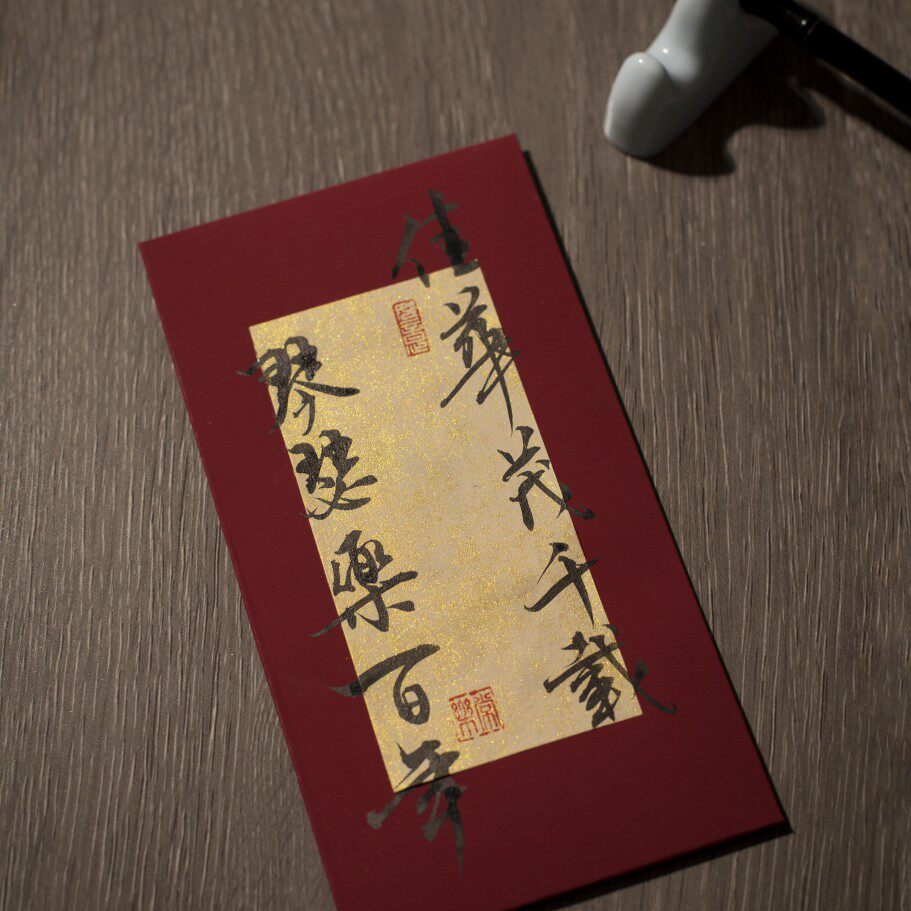 佳華茂千載
琴瑟樂百年
常樂